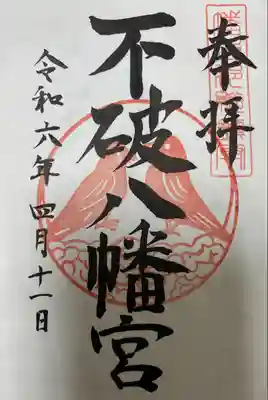 奉拝
不破八幡宮
令和六年 四月十一日